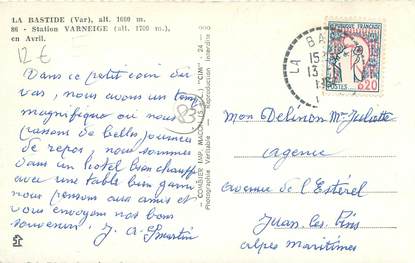 LA BASTIDE (Var), alt. 1600 m.
86 - Station VARNEIGE (alt. 1700 m.),
en Avril.
12 €
Dans ce petit coin du
var, nous avons un temps
magnifique où nous
passons de belles journées
de repos, nous sommes
dans un hotel bien chauffé
avec une table bien garnie
nous pensons aux amis et
vous envoyons nos bons
souvenirs. J. A.
83
COMBIER IMP. MACON "CIM"
Photographie Véritable - Reproduction interdite
LA BA
15
13
REPUBLIQUE FRANÇAISE
POSTES 0,20
Mon Delinon Mme Juliette
agence
avenue de l'Estérel
Juan les Pins
alpes maritimes